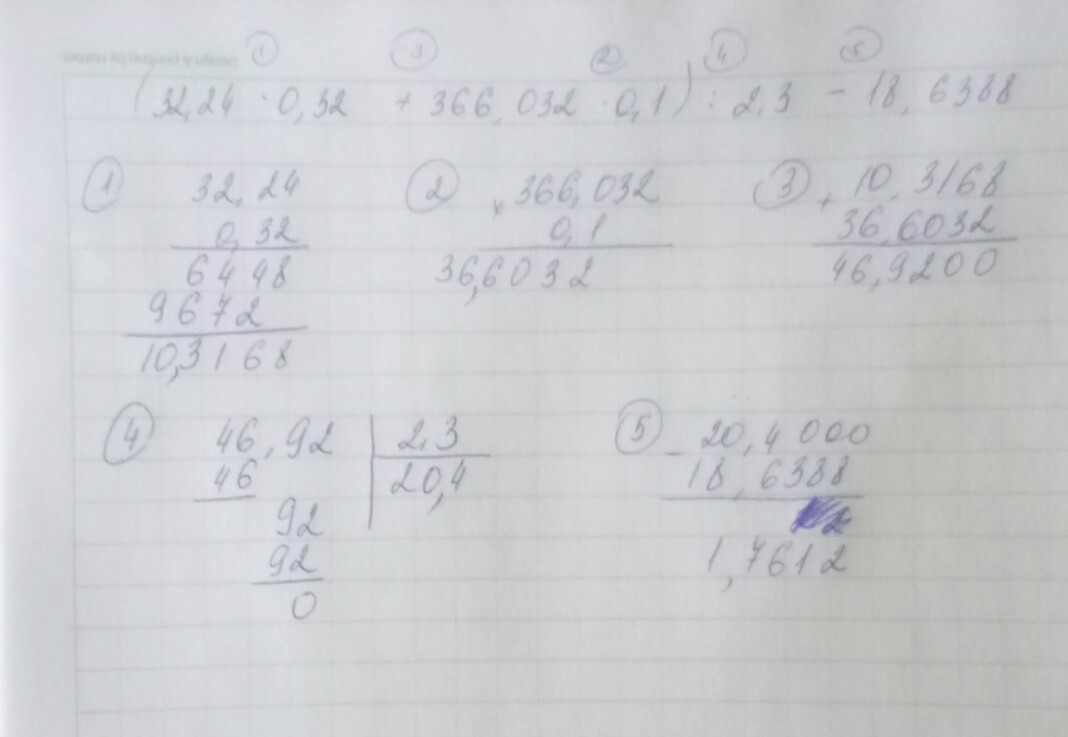 ① ③ ② ④ ⑤
(32,24 · 0,32 + 366,032 · 0,1) : 2,3 - 18,6388
① 32,24
0,32
6448
9672
10,3168
② x 366,032
0,1
36,6032
③ + 10,3168
36,6032
46,9200
④ 46,92 | 2,3
46 20,4
92
92
0
⑤ - 20,4000
18,6388
1,7612